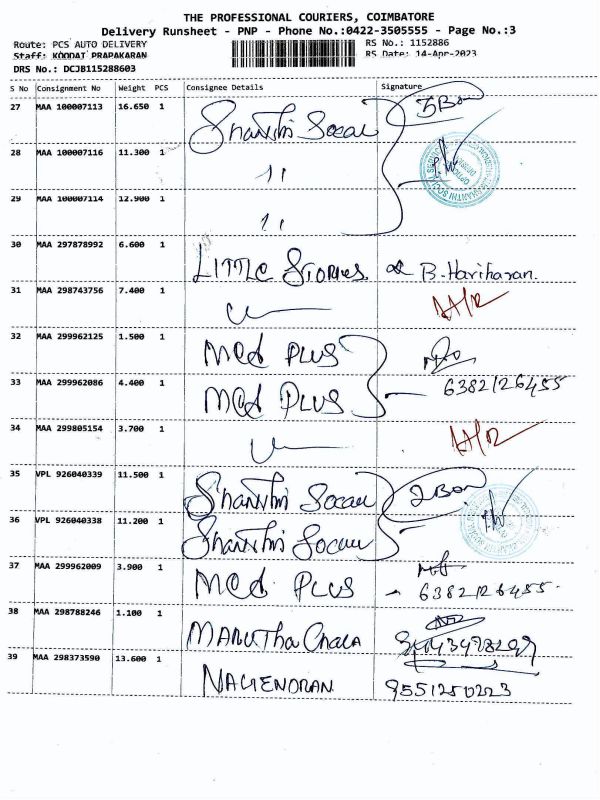 THE PROFESSIONAL COURIERS, COIMBATORE
Delivery Runsheet - PNP - Phone No.:0422-3505555 - Page No.:3
Route: PCS AUTO DELIVERY RS No.: 1152886
Staff: KODDAI PRAPAKARAN RS Date: 14-Apr-2023
DRS No.: DCJB115288603
S No Consignment No Weight PCS Consignee Details Signature
27 MAA 100007113 16.650 1 Shanthi Socail 3 Box
28 MAA 100007116 11.300 1 11
29 MAA 100007114 12.900 1 11
30 MAA 297878992 6.600 1 LITTLE STORIES B. Hariharan.
31 MAA 298743756 7.400 1 A/R
32 MAA 299962125 1.500 1 Med PLUS
33 MAA 299962086 4.400 1 Med PLUS 6382126455
34 MAA 299805154 3.700 1 A/R
35 VPL 926040339 11.500 1 Shanthi Socail 2 Box
36 VPL 926040338 11.200 1 Shanthi Socail
37 MAA 299962009 3.900 1 Med PLUS - 6382126455
38 MAA 298788246 1.100 1 MARUTHA CHALA
39 MAA 298373590 13.600 1 NAGENDRAN 9551250223